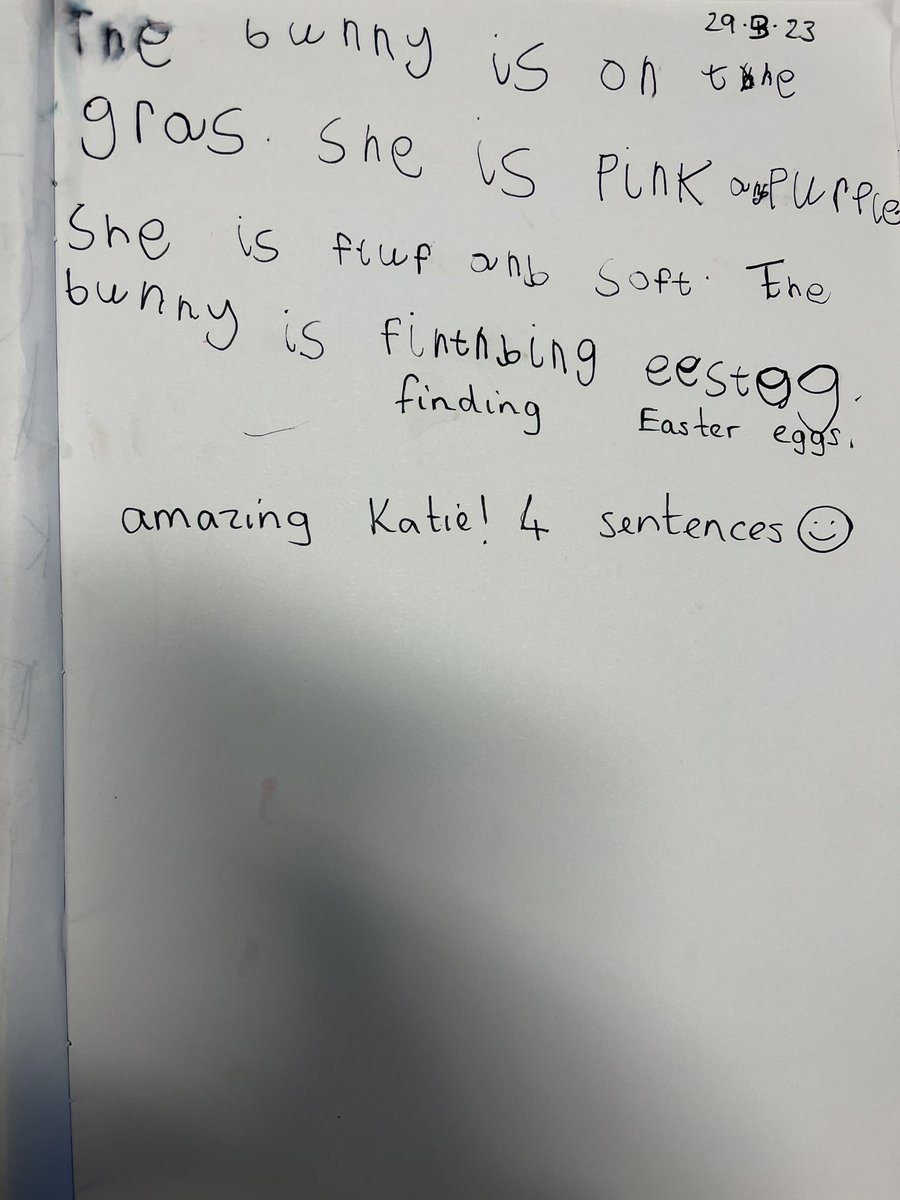 29.3.23
The bunny is on the
gras. She is Pink and Purple
She is fluf anb soft. The
bunny is finthbing eestegg.
finding Easter eggs.
amazing Katie! 4 sentences